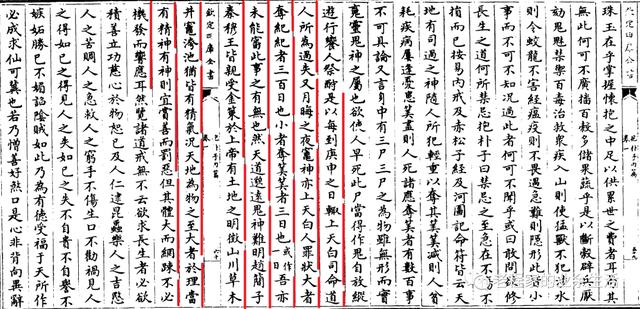 珠玉在乎掌握懷抱之中足以供累世之費者耳苟其
無此何可不廣播百穀多儲果蔬乎是以斷穀辟兵厭
劾鬼魅禁禦百毒治救衆疾入山則使猛獸不犯涉水
則令蛟龍不害經瘟疫則不畏遇急難則隱形此皆小
事而不可不知況過此者何可不聞乎或曰敢問欲修
長生之道何所禁忌抱朴子曰禁忌之至急在不傷不
損而已按易内戒及赤松子經及河圖記命符皆云天
地有司過之神隨人所犯輕重以奪其筭筭減則人貧
耗疾病屢逢憂患筭盡則人死諸應奪筭者有數百事
不可具論又言身中有三尸三尸之為物雖無形而實
䰟靈鬼神之屬也欲使人早死此尸當得作鬼自放縱
遊行饗人祭酹是以每到庚申之日輒上天白司命道
人所為過失又月晦之夜竈神亦上天白人罪狀大者
奪紀紀者三百日也小者奪筭筭者三日也或作一日吾亦
未能審此事之有無也然天道邈遠鬼神難明趙簡子
秦穆王皆親受金策於上帝有土地之明徵山川草木
欽定四庫全書
井竈洿池猶皆有精氣況天地為物之至大者於理當
有精神有神則宜賞善而罰惡但其體大而網疎不必
機發而響應耳然覽諸道戒無不云欲求長生者必欲
積善立功慈心於物恕己及人仁逮昆蟲樂人之吉愍
人之苦賙人之急救人之窮手不傷生口不勸禍見人
之得如己之得見人之失如己之失不自貴不自譽不
嫉妬勝己不媚諂陰賊如此乃為有德受福於天所作
必成求仙可冀也若乃憎善好煞口是心非背向異辭